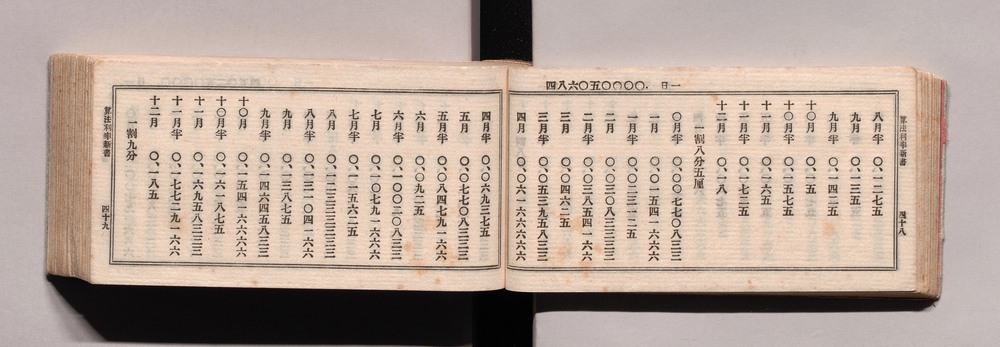 算法利率新書 四十八
一日 .〇〇〇〇五〇六八四
八月半 〇、一二七五
九月 〇、一三五
九月半 〇、一四二五
十〇月 〇、一五
十〇月半 〇、一五七五
十一月 〇、一六五
十一月半 〇、一七二五
十二月 〇、一八
一割八分五厘
〇月半 〇、〇〇七七〇八三三
一月 〇、〇一五四一六六六
一月半 〇、〇二三一二五
二月 〇、〇三〇八三三三三
二月半 〇、〇三八五四一六六
三月 〇、〇四六二五
三月半 〇、〇五三九五八三三
四月 〇、〇六一六六六六六
四月半 〇、〇六九三七五
五月 〇、〇七七〇八三三三
五月半 〇、〇八四七九一六六
六月 〇、〇九二五
六月半 〇、一〇〇二〇八三三
七月 〇、一〇七九一六六六
七月半 〇、一一五六二五
八月 〇、一二三三三三三三
八月半 〇、一三一〇四一六六
九月 〇、一三八七五
九月半 〇、一四六四五八三三
十〇月 〇、一五四一六六六六
十〇月半 〇、一六一八七五
十一月 〇、一六九五八三三三
十一月半 〇、一七七二九一六六
十二月 〇、一八五
一割九分
算法利率新書 四十九